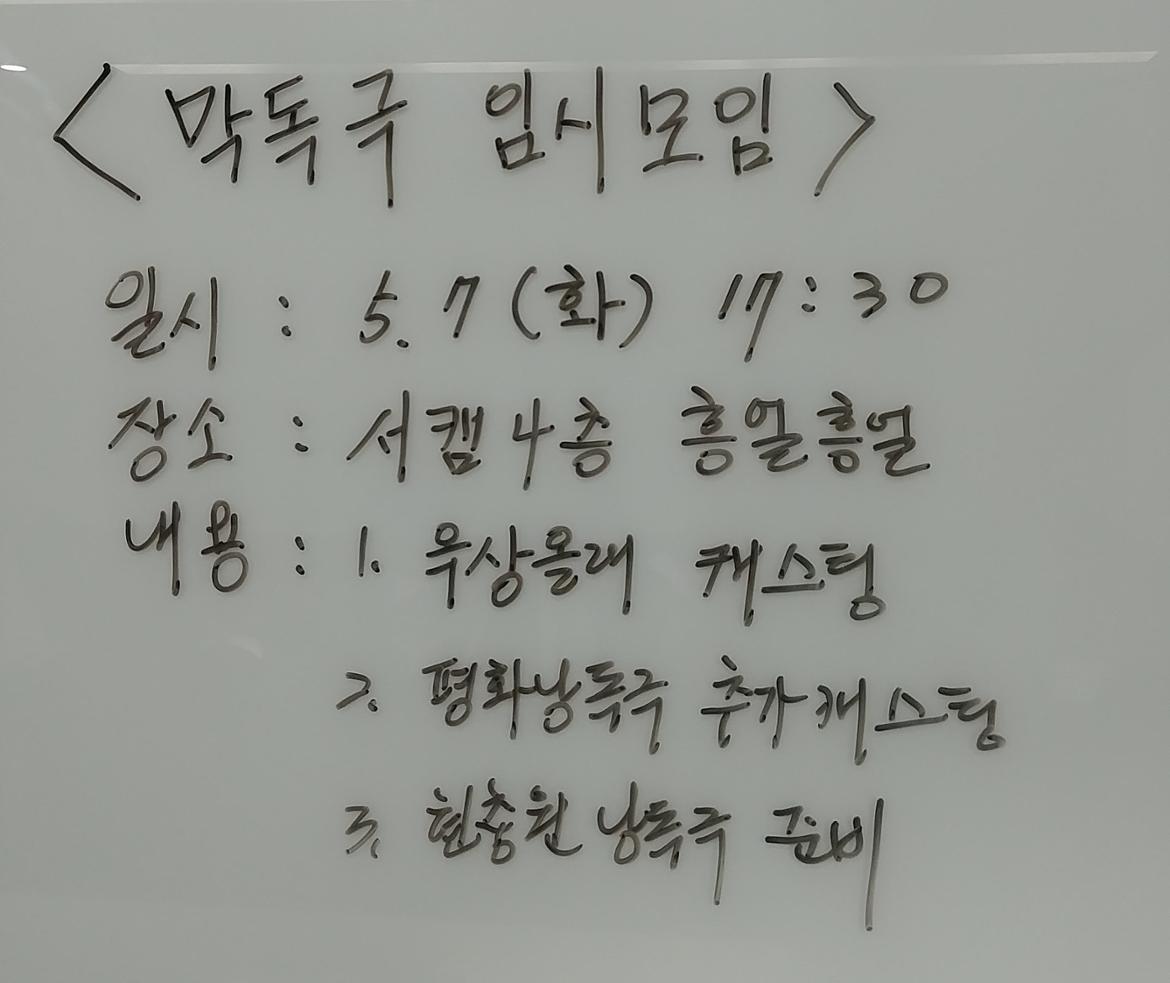 < 막독극 임시모임 >
일시 : 5. 7 (화) 17:30
장소 : 서캠 4층 흥얼흥얼
내용 : 1. 무상올래 캐스팅
2. 평화낭독극 추가캐스팅
3. 현충원 낭독극 준비